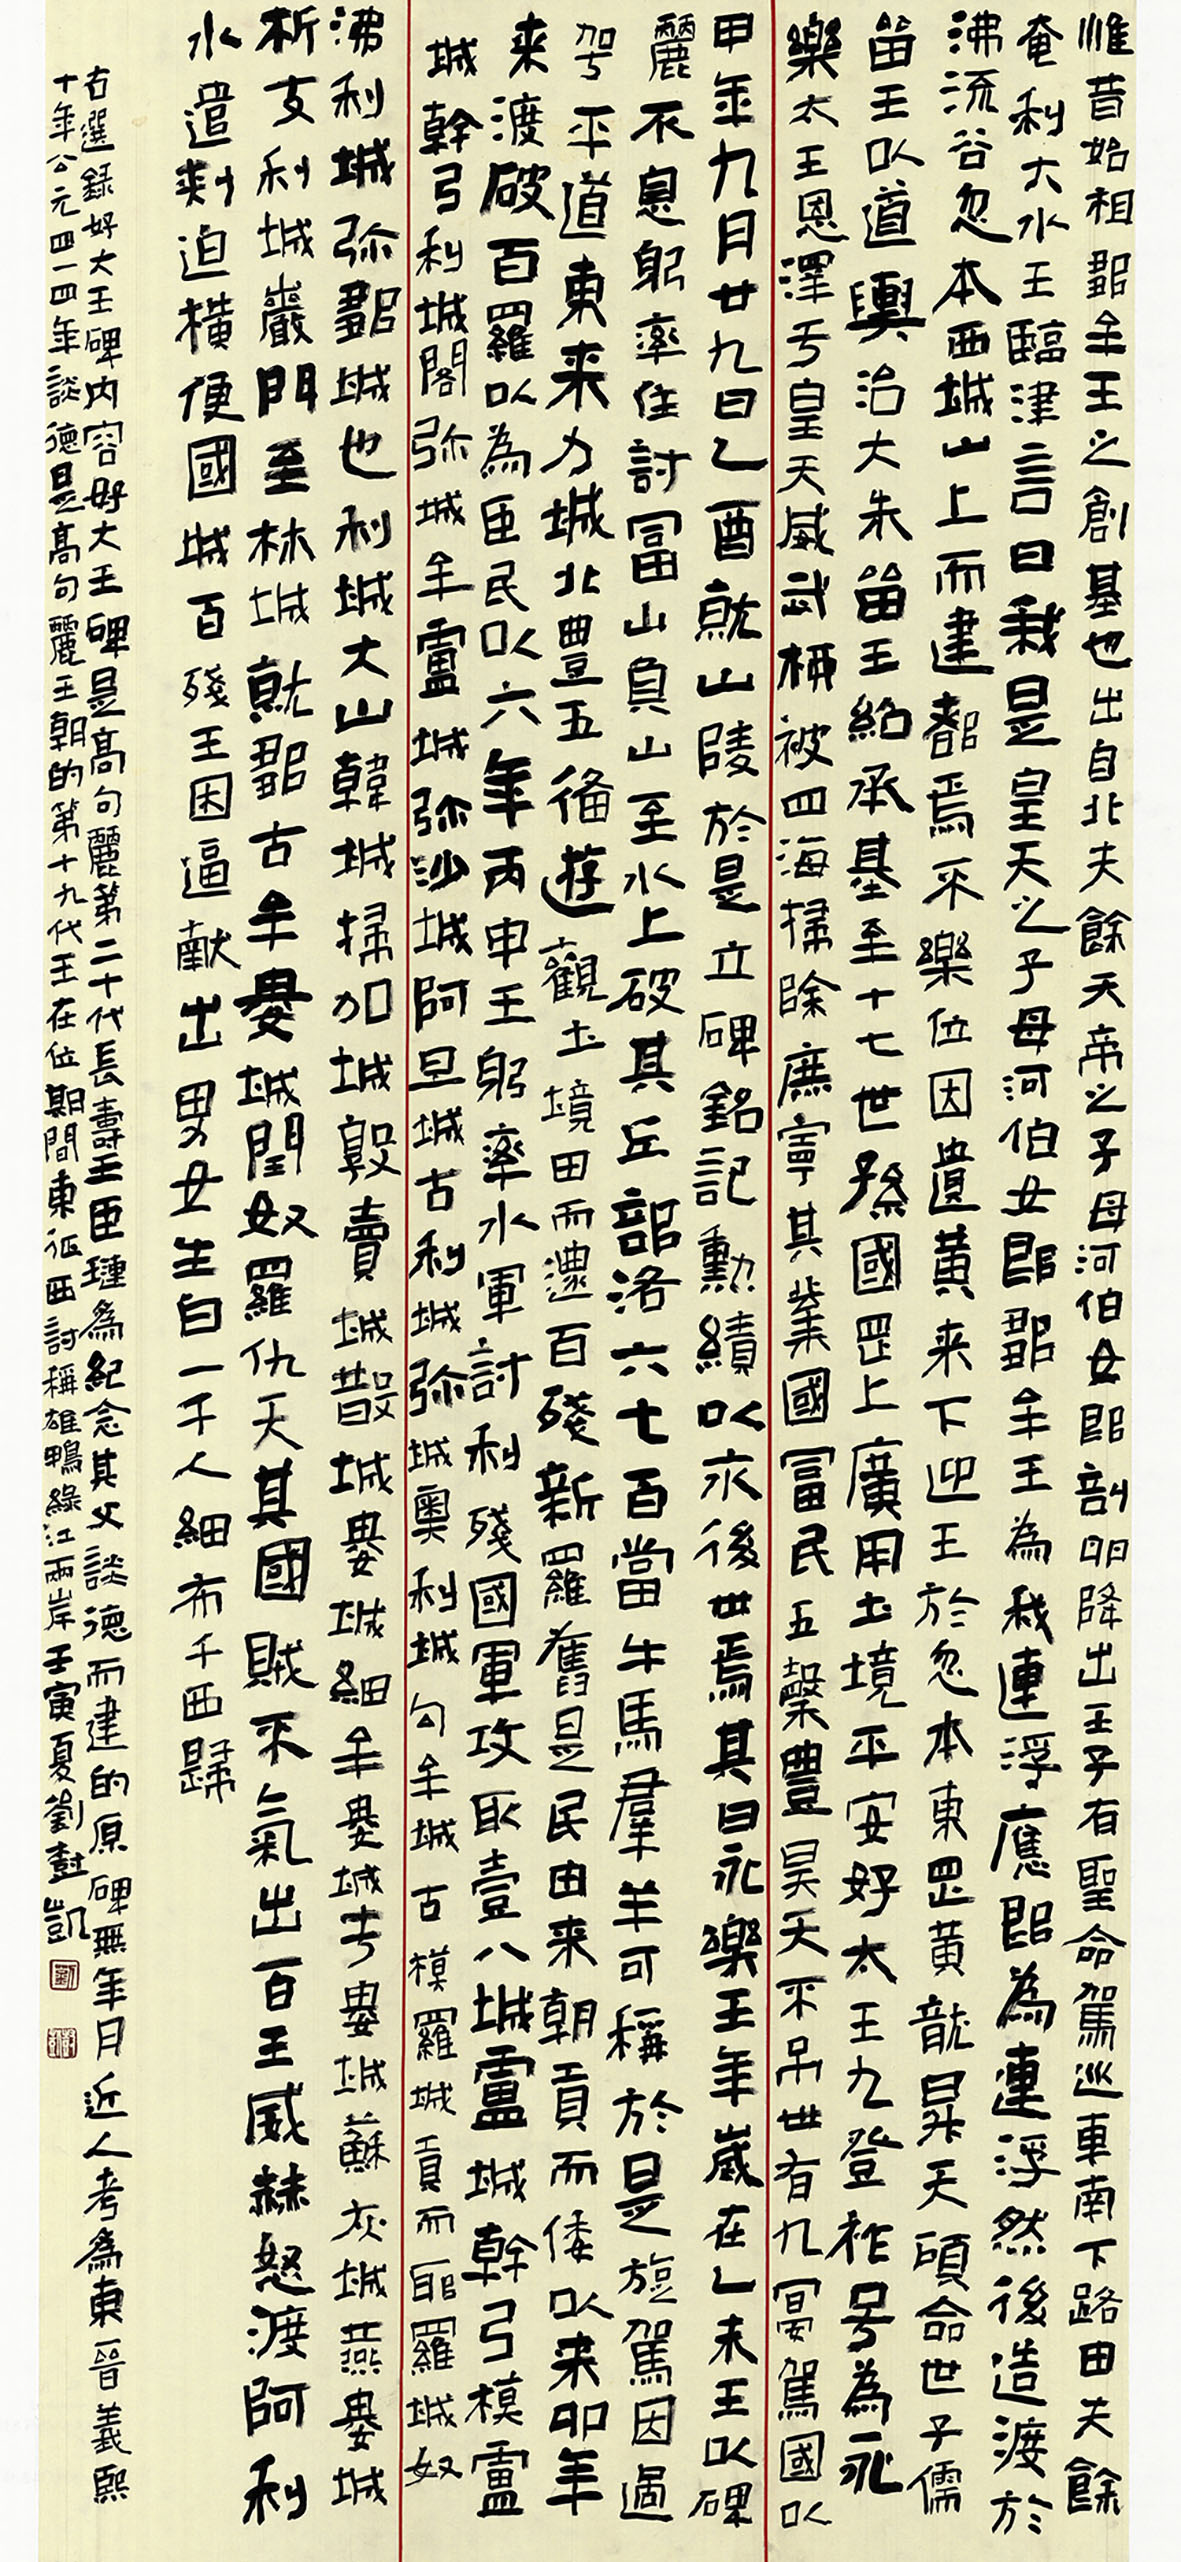 惟昔始祖鄒牟王之創基也出自北夫餘天帝之子母河伯女郎剖卵降出王子有聖命駕巡車南下路由夫餘
奄利大水王臨津言曰我是皇天之子母河伯女郎鄒牟王為我連浮應即為連浮然後造渡於
沸流谷忽本西城山上而建都焉不樂位因遣黃来下迎王於忽本東罡黃龍昇天碩命世子儒
留王以道輿治大朱留王紹承基至十七世孫國罡上廣用土境平安好太王九登祚号為永
樂太王恩澤于皇天威武柳被四海掃除庶寧其業國冨民五穀豐昊天不吊世有九宴駕國以
甲年九月廿九日乙酉就山陵於是立碑銘記勳績以永後世焉其曰永樂王年崴在乙未王以碑
麗不息躬率住討冨山負山至水上破其丘部洛六七百當牛馬羣羊可稱於是旋駕因過
平道東来力城北豐五備遊觀土境田而還百殘新羅舊是民由来朝貢而倭以来卯年
来渡破百羅以為臣民以六年丙申王躬率水軍討利殘國軍攻取壹八城盧城幹弓模盧
城幹弓利城閣弥城牟盧城弥沙城阿旦城古利城弥城奧利城勾牟城古模羅城頁而耶羅城奴
沸利城弥鄒城也利城大山韓城掃加城敦賣城㪚城婁城細牟婁城考婁城蘇灰城燕婁城
析支利城巖門至林城就鄒古牟婁城閏奴羅仇天其國賊不氣出百王威赫怒渡阿利
水遣刺迫橫便國城百殘王困逼献出男女生白一千人細布千西歸
右選錄好大王碑内容好大王碑是高句麗第二十代長壽王臣璉為紀念其父談德而建的原碑無年月近人考為東晉義熙
十年公元四一四年談德是高句麗王朝的第十九代王在位期間東征西討稱雄鴨綠江兩岸壬寅夏劉凱